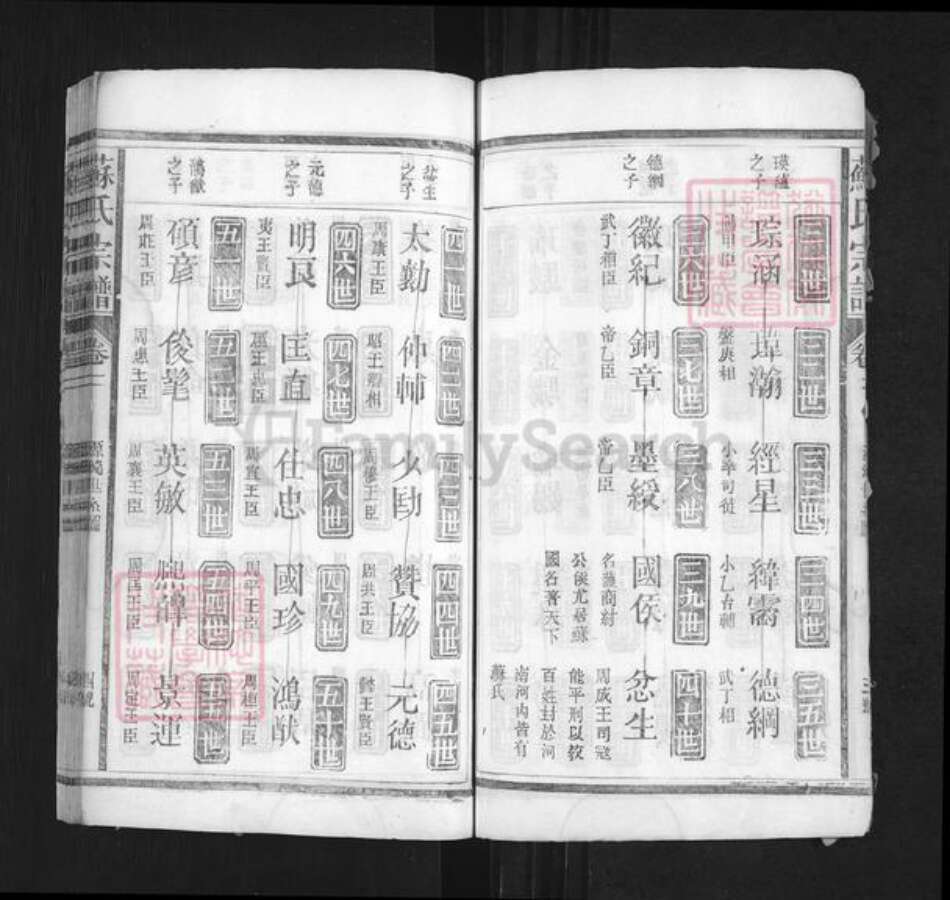 蘇氏宗譜
瑛蘊之子
三一世
琮涵
陽甲臣
三二世
瑋瀚
盤庚相
三三世
經星
小辛司徒
三四世
緯霱
小乙台輔
三五世
德綱
武丁相
德綱之子
三六世
徽紀
武丁相臣
三七世
銅章
帝乙臣
三八世
墨綬
帝乙臣
三九世
國侯
名蘇商紂
公侯尤居蘇
國名著天下
四十世
忿生
周成王司寇
能平刑以敎
百姓封於河
南河內皆有
蘇氏
忿生之子
四一世
太勳
周康王臣
四二世
仲輔
昭王相
四三世
少勛
四四世
贊協
周共王臣
四五世
元德
懿王賢臣
元德之子
四六世
明良
夷王賢臣
四七世
匡直
厲王忠臣
四八世
仕忠
周宣王臣
四九世
國珍
周平王臣
五十世
鴻猷
周桓王臣
鴻猷之子
五一世
碩彥
周莊王臣
五二世
俊髦
周惠王臣
五三世
英敏
周襄王臣
五四世
周匡王臣
五五世
景運
周定王臣
蘇氏宗譜
卷
FamilySearch